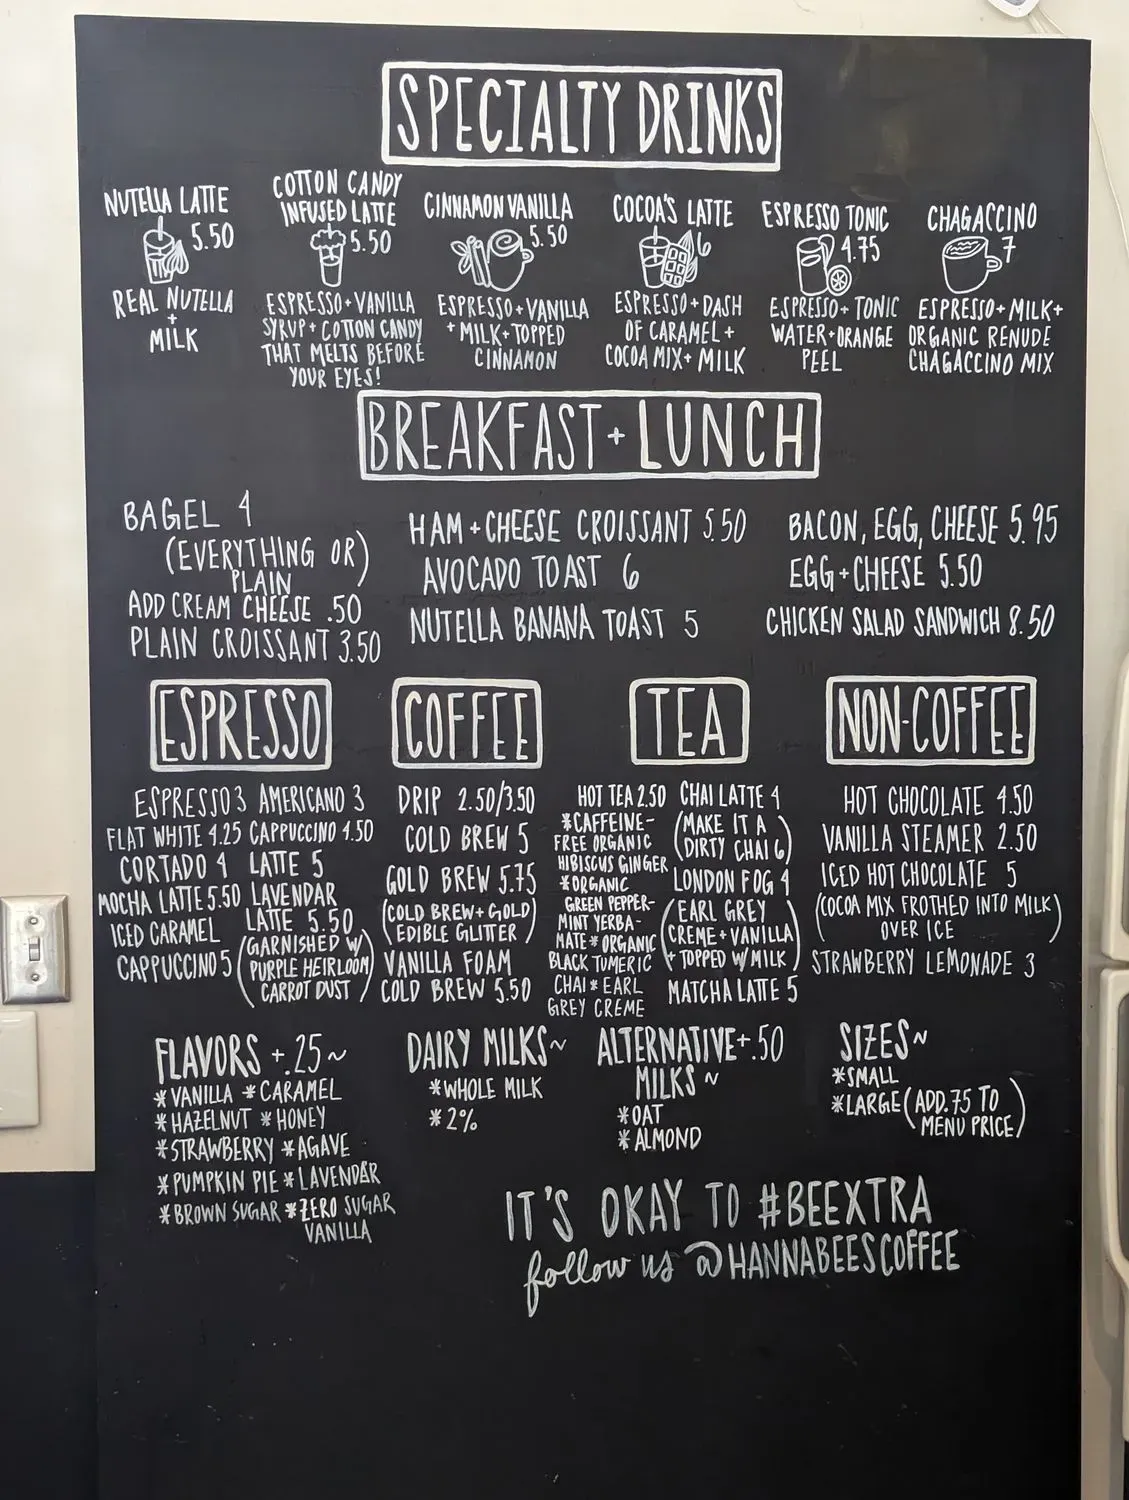 SPECIALTY DRINKS
NUTELLA LATTE
5.50
REAL NUTELLA
+
MILK
COTTON CANDY
INFUSED LATTE
5.50
ESPRESSO+VANILLA
SYRUP+COTTON CANDY
THAT MELTS BEFORE
YOUR EYES!
CINNAMON VANILLA
5.50
ESPRESSO+VANILLA
+MILK+TOPPED
CINNAMON
COCOA'S LATTE
6
ESPRESSO+DASH
OF CARAMEL+
COCOA MIX+MILK
ESPRESSO TONIC
4.75
ESPRESSO+TONIC
WATER+ORANGE
PEEL
CHAGACCINO
7
ESPRESSO+MILK+
ORGANIC RENUDE
CHAGACCINO MIX
BREAKFAST+LUNCH
BAGEL 4
(EVERYTHING OR)
PLAIN
ADD CREAM CHEESE .50
PLAIN CROISSANT 3.50
HAM+CHEESE CROISSANT 5.50
AVOCADO TOAST 6
NUTELLA BANANA TOAST 5
BACON, EGG, CHEESE 5.95
EGG+CHEESE 5.50
CHICKEN SALAD SANDWICH 8.50
ESPRESSO
ESPRESSO 3 AMERICANO 3
FLAT WHITE 4.25 CAPPUCCINO 4.50
CORTADO 4 LATTE 5
MOCHA LATTE 5.50 LAVENDAR
LATTE 5.50
ICED CARAMEL
CAPPUCCINO 5
(GARNISHED W/
PURPLE HEIRLOOM
CARROT DUST)
COFFEE
DRIP 2.50/3.50
COLD BREW 5
GOLD BREW 5.75
(COLD BREW+GOLD)
EDIBLE GLITTER
VANILLA FOAM
COLD BREW 5.50
TEA
HOT TEA 2.50
*CAFFEINE-
FREE ORGANIC
HIBISCUS GINGER
*ORGANIC
GREEN PEPPER-
MINT YERBA-
MATE*ORGANIC
BLACK TUMERIC
CHAI*EARL
GREY CREME
CHAI LATTE 4
(MAKE IT A
DIRTY CHAI 6)
LONDON FOG 4
(EARL GREY
CREME+VANILLA
+TOPPED W/MILK)
MATCHA LATTE 5
NON-COFFEE
HOT CHOCOLATE 4.50
VANILLA STEAMER 2.50
ICED HOT CHOCOLATE 5
(COCOA MIX FROTHED INTO MILK)
OVER ICE
STRAWBERRY LEMONADE 3
FLAVORS +.25~
*VANILLA *CARAMEL
*HAZELNUT *HONEY
*STRAWBERRY *AGAVE
*PUMPKIN PIE *LAVENDAR
*BROWN SUGAR *ZERO SUGAR
VANILLA
DAIRY MILKS~
*WHOLE MILK
*2%
ALTERNATIVE+.50
MILKS~
*OAT
*ALMOND
SIZES~
*SMALL
*LARGE (ADD .75 TO
MENU PRICE)
IT'S OKAY TO #BEEXTRA
follow us @HANNABEESCOFFEE